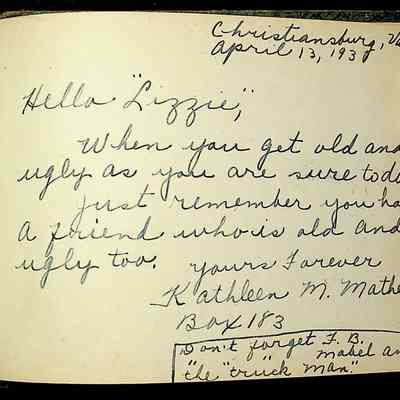 Christiansburg, Va
April 13, 193
Hello "Lizzie",
When you get old and
ugly as you are sure to do
just remember you ha
a friend who is old and
ugly too. yours Forever
Kathleen M. Mathe
Box 183
Don't forget F. B.
Mabel an
"the "truck man".